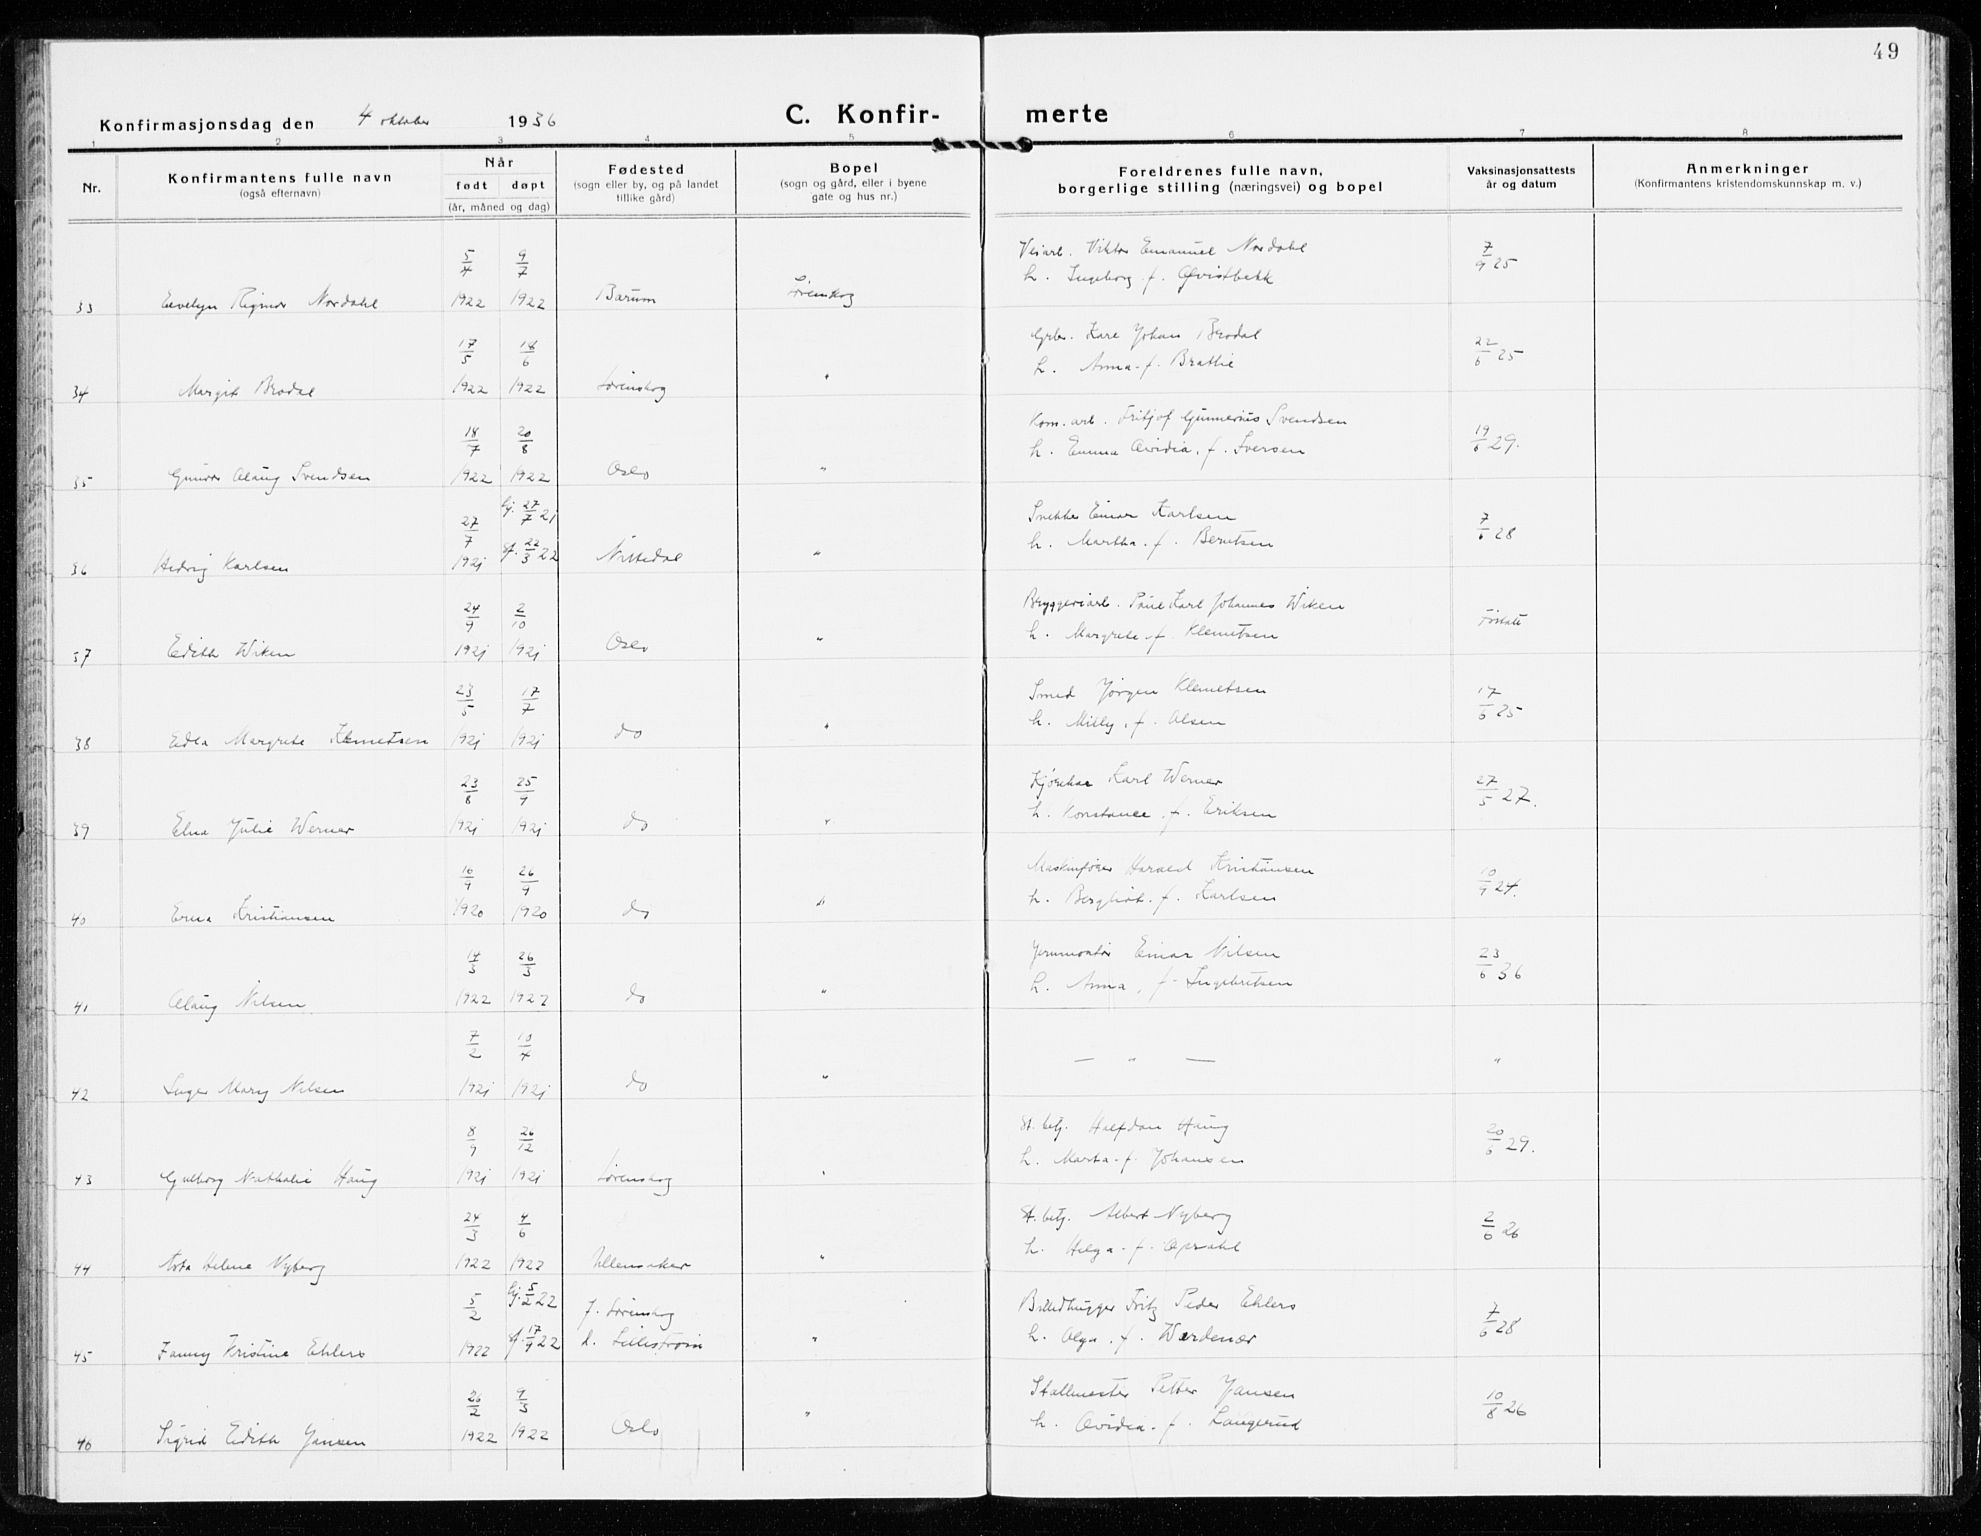 49
Konfirmasjonsdag den 4 oktober 1936
C. Konfir- merte
1 2 3 4 5 6 7 8
Nr.
Konfirmantens fulle navn
(også efternavn)
Når
født døpt
(år, måned og dag)
Fødested
(sogn eller by, og på landet
tillike gård)
Bopel
(sogn og gård, eller i byene
gate og hus nr.)
Foreldrenes fulle navn,
borgerlige stilling (næringsvei) og bopel
Vaksinasjonsattests
år og datum
Anmerkninger
(Konfirmantens kristendomskunnskap m. v.)
5/4 9/7 Veiarb. Viktor Emanuel Nordahl 7/9 25
h. Ingeborg f. Qvistbekk
33 Eevelyn Rigmor Nordahl 1922 1922 Bærum Lørenskog
17/5 18/6 Grbr. Kare Johan Brodal 22/6 25
h. Anna f. Brattlie
34 Margit Brodal 1922 1922 Lørenskog "
18/7 20/8 Kom. arb. Fritjof Gunnerius Svendsen 19/6 29.
h. Emma Ovidia, f. Iversen
35 Gunvor Olaug Svendsen 1922 1922 Oslo "
27/7 Hj. 27/7 21 Snekker Einar Karlsen 7/6 28
st. 22/3 22 h. Martha f. Berntsen
36 Hedvig Karlsen 1921 Nittedal "
24/9 2/10 Bryggeriarb. Paul Karl Johannes Wiken
h. Margrete f. Klemetsen
37 Edith Wiken 1921 1921 Oslo "
23/5 17/7 Smed Jørgen Klemetsen 17/6 25
h. Milly, f. Olsen
38 Edla Margrete Klemetsen 1921 1921 do "
23/8 25/9 Karl Werner 27/5 27.
h. Konstance, f. Eriksen
39 Elna Julie Werner 1921 1921 do "
16/9 26/9 Maskinfører Harald Kristiansen 10/9 24.
h. Bergliot f. Karlsen
40 Erna Kristiansen 1920 1920 do "
14/3 26/3 Jernmontør Einar Nilsen 23/6 36
h. Anna, f. Ingebretsen
41 Olaug Nilsen 1922 1922 do "
7/2 10/4 — " — "
42 Inger Mary Nilsen 1921 1921 do "
8/9 26/12 St. betj. Halfdan Haug 20/6 29.
h. Marta f. Johansen
43 Gulborg Nathalie Haug 1921 1921 Lørenskog "
24/3 4/6 St. betj. Albert Nyberg 2/6 26
h. Helga f. Opsahl
44 Asta Helene Nyberg 1922 1922 Ullensaker "
5/2 Hj. 5/2 22 f. Lørenskog Billedhugger Fritz Peder Ehlers 7/6 28
st. 17/9 22 d. Lillestrøm " h. Olga, f. Werdenær
45 Fanny Kristine Ehlers 1922
26/2 9/3 Stallmester Petter Jansen 10/8 26
h. Ovidia f. Langerud
46 Sigrid Edith Jansen 1922 1922 Oslo "